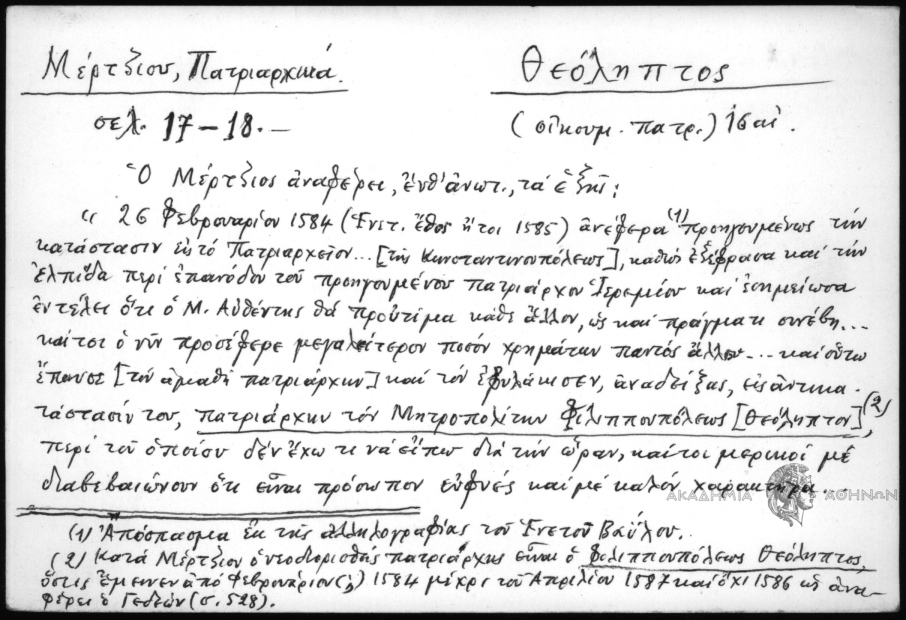 Μέρτζιου, Πατριαρχικά.
Θεόληπτος
σελ. 17-18.-
(οἰκουμ. πατρ.) 16 αἰ.
Ὁ Μέρτζιος ἀναφέρει, ἔνθ' ἀνωτ., τά ἑξῆς:
" 26 Φεβρουαρίου 1584 (Ἑνετ. ἔθος ἤτοι 1585) ἀνέφερα (1) προηγουμένως τήν
κατάστασιν εἰς τό Πατριαρχεῖον... [τῆς Κωνσταντινουπόλεως], καθώς ἐξέφρασα καί τήν
ἐλπίδα περί ἐπανόδου τοῦ προηγουμένου πατριάρχου Ἱερεμίου καί ἐσημείωσα
ἐν τέλει ὅτι ὁ Μ. Αὐθέντης θά προὐτίμα κάθε ἄλλον, ὡς καί πράγματι συνέβη...
καίτοι ὁ νῦν προσέφερε μεγαλείτερον ποσόν χρημάτων παντός ἄλλου... καί οὕτω
ἔπαυσε [τόν ἀμαθῆ πατριάρχην] καί τόν ἐφυλάκισεν, ἀναδείξας, εἰς ἀντικα-
τάστασίν του, πατριάρχην τόν Μητροπολίτην Φιλιππουπόλεως [Θεόληπτον], (2)
περί τοῦ ὁποίου δέν ἔχω τι νά εἴπω διά τήν ὥραν, καίτοι μερικοί μέ
διαβεβαιώνουν ὅτι εἶναι πρόσωπον εὐφυές καί μέ καλόν χαρακτῆρα...
ΑΚΑΔΗΜΙΑ ΑΘΗΝΩΝ
(1) Ἀπόσπασμα ἐκ τῆς ἀλληλογραφίας τοῦ Ἑνετοῦ Βαΰλου.
(2) Κατά Μέρτζιον ὁ νεοδιορισθείς πατριάρχης εἶναι ὁ Φιλιππουπόλεως Θεόληπτος,
ὅστις ἔμεινεν ἀπό Φεβρουάριον (;) 1584 μέχρι τοῦ Ἀπριλίου 1587 καί ὄχι 1586 ὡς ἀνα-
φέρει ὁ Γεδεών (σ. 528).